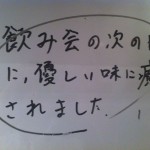 飲み会の次の
に,優しい味に癒
されました.